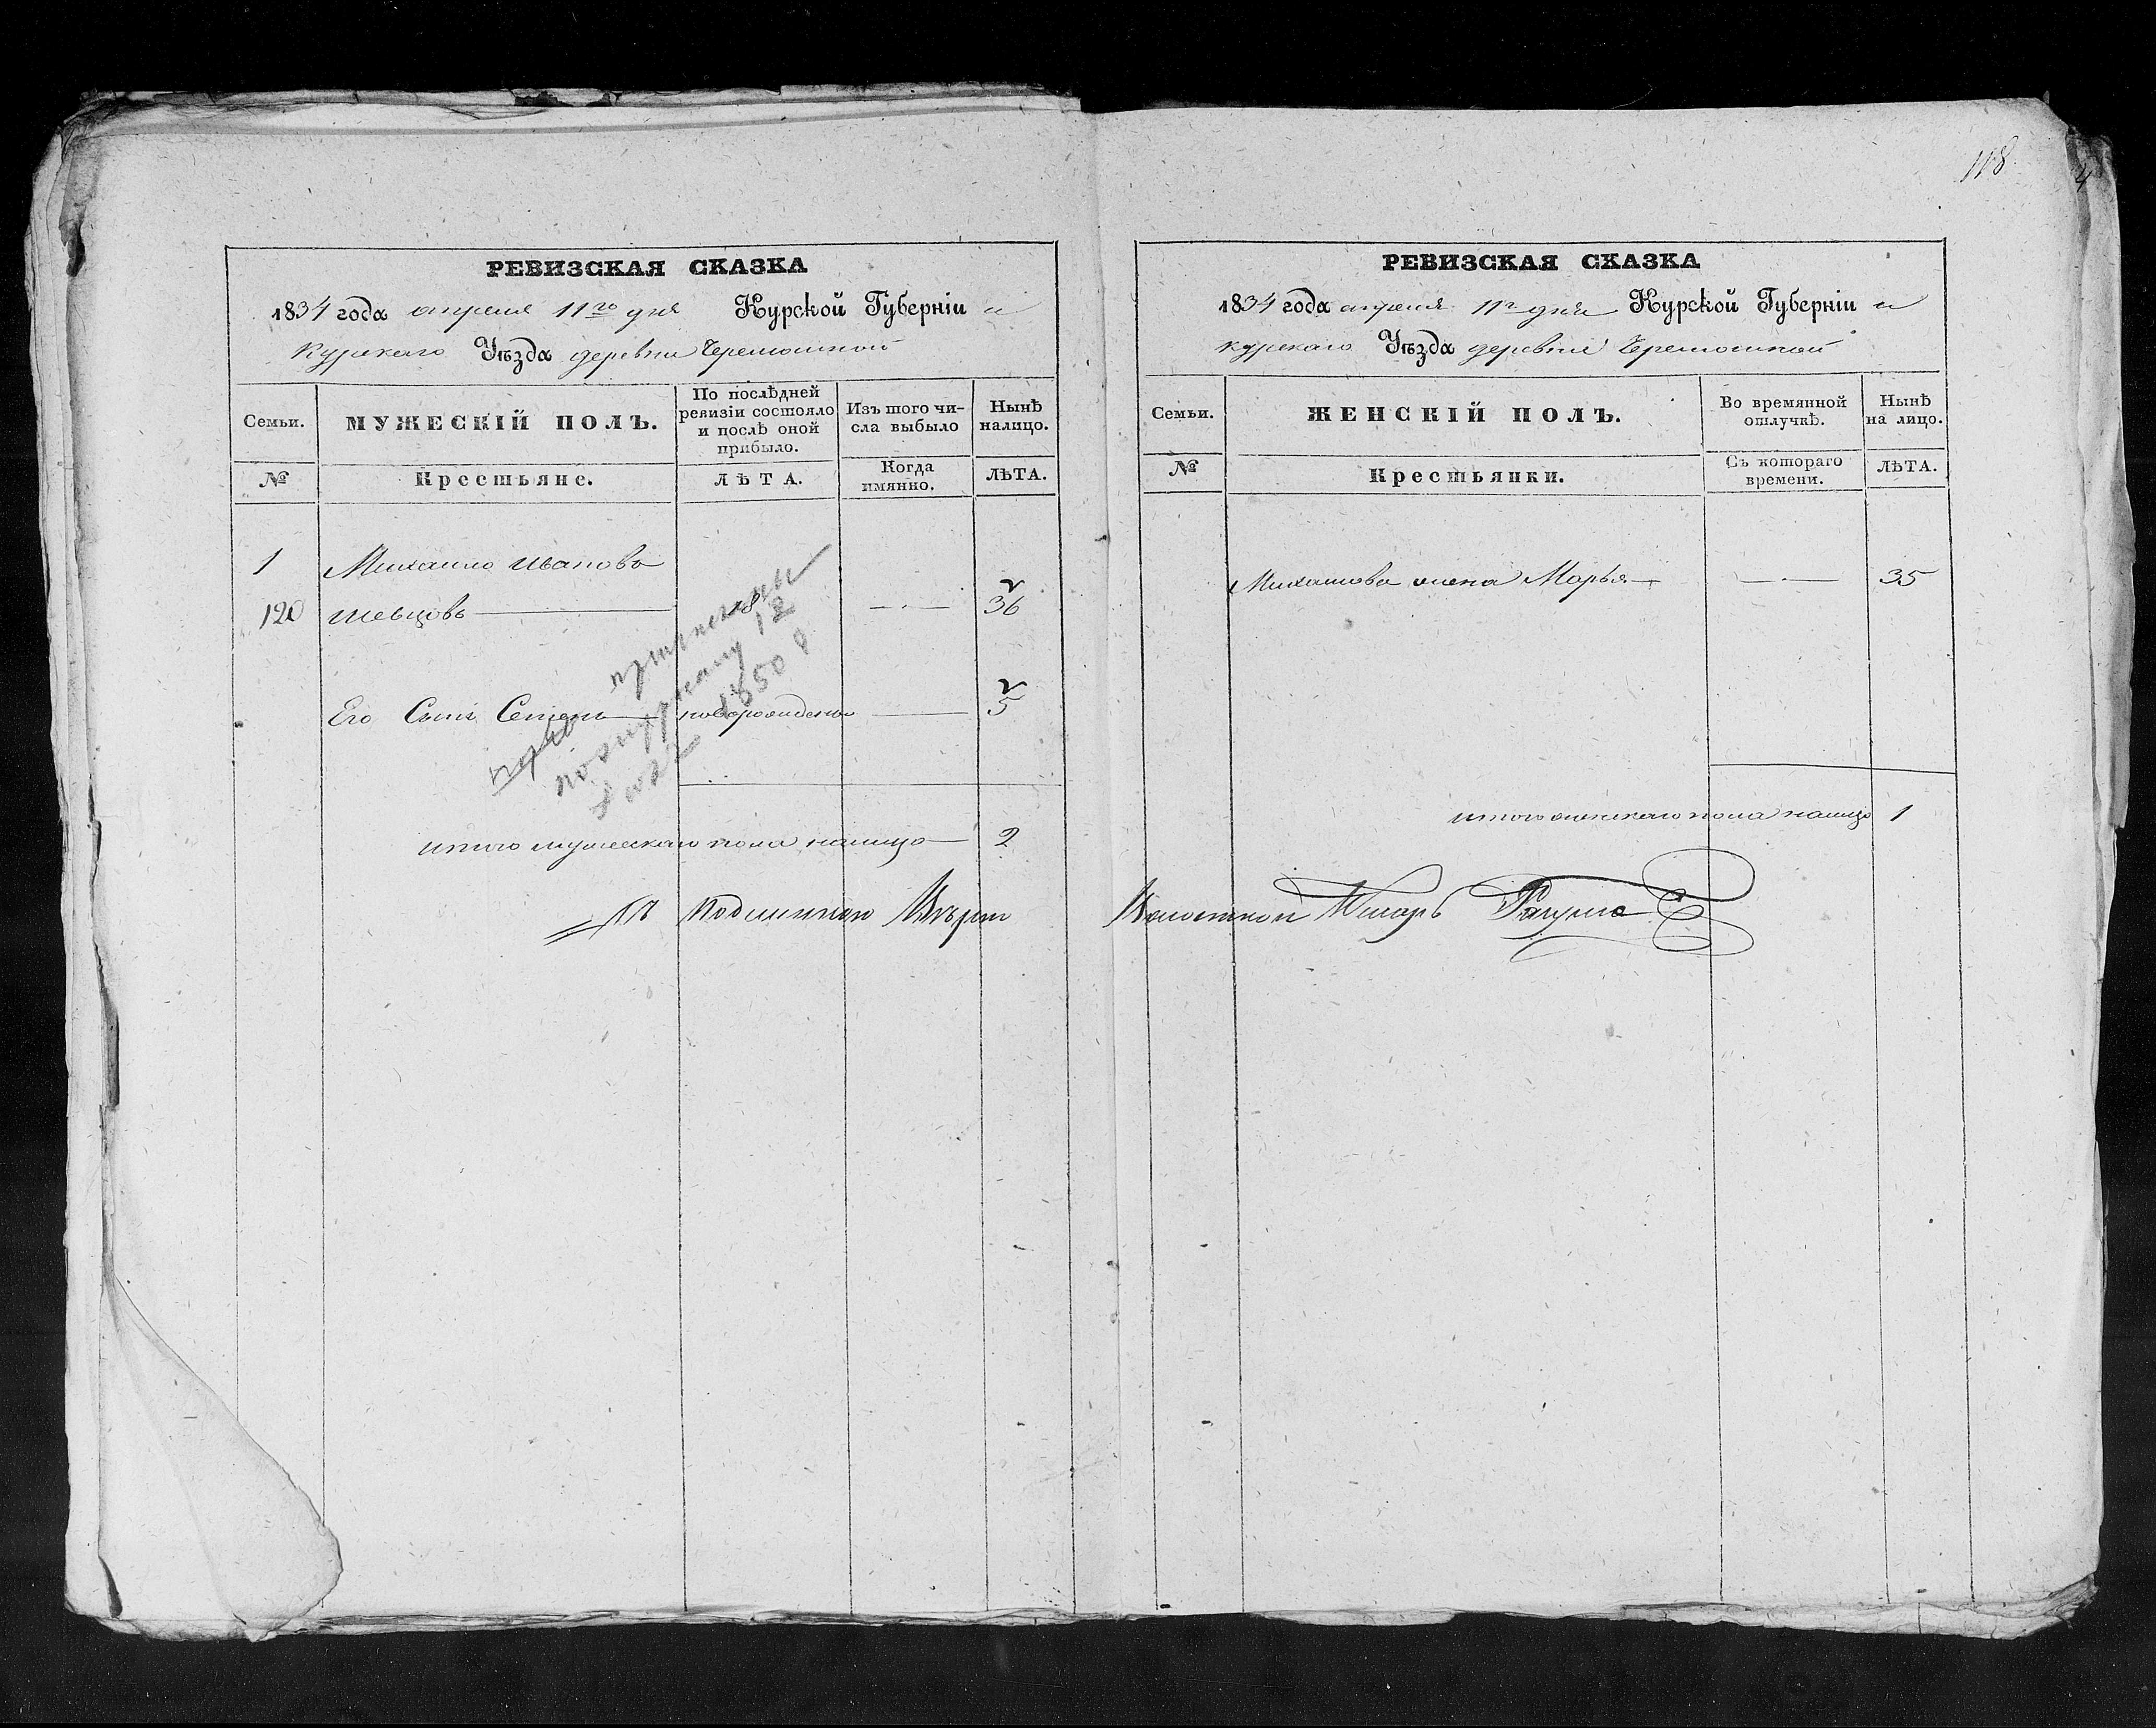 118
РЕВИЗСКАЯ СКАЗКА
1834 года апреля 11го дня Курской Губерніи и
Курскаго Уѣзда деревни Черемошной
Семьи.
МУЖЕСКІЙ ПОЛЪ.
По послѣдней
ревизіи состояло
и послѣ оной
прибыло.
Изъ того чи-
сла выбыло
Нынѣ
налицо.
№
Крестьяне.
ЛѢТА.
Когда
имянно.
ЛѢТА.
1 Михаило Ивановъ
120 Шевцовъ 18 36
Его Сынъ Семенъ новорожденъ 5
1850
итого мужескаго пола налицо 2
Къ подлинной
РЕВИЗСКАЯ СКАЗКА
1834 года апреля 11г дня Курской Губерніи и
курскаго Уѣзда деревни Черемошной
Семьи.
ЖЕНСКІЙ ПОЛЪ.
Во времянной
отлучкѣ.
Нынѣ
на лицо.
№
Крестьянки.
Съ котораго
времени.
ЛѢТА.
Михаилова жена Марья 35
итого женскаго пола налицо 1
Волостной Писарь